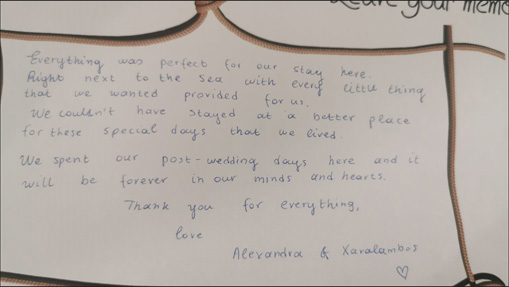 Leave your memo
Everything was perfect for our stay here.
Right next to the sea with every little thing
that we wanted provided for us.
We couldn't have stayed at a better place
for these special days that we lived.
We spent our post-wedding days here and it
will be forever in our minds and hearts.
Thank you for everything,
love
Alexandra & Xaralambos